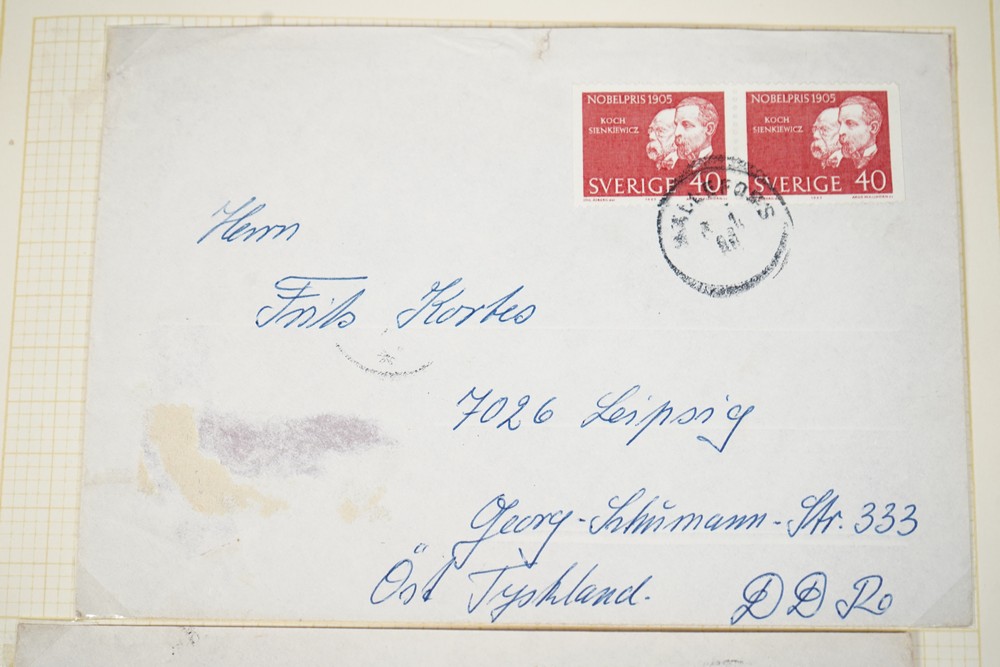 NOBELPRIS 1905
KOCH
SIENKIEWICZ
SVERIGE 40
NOBELPRIS 1905
KOCH
SIENKIEWICZ
SVERIGE 40
HÄLLEFORS
Herrn
Frits Kortes
7026 Leipzig
Georg-Schumann-Str. 333
Öst Tyskland. DDR